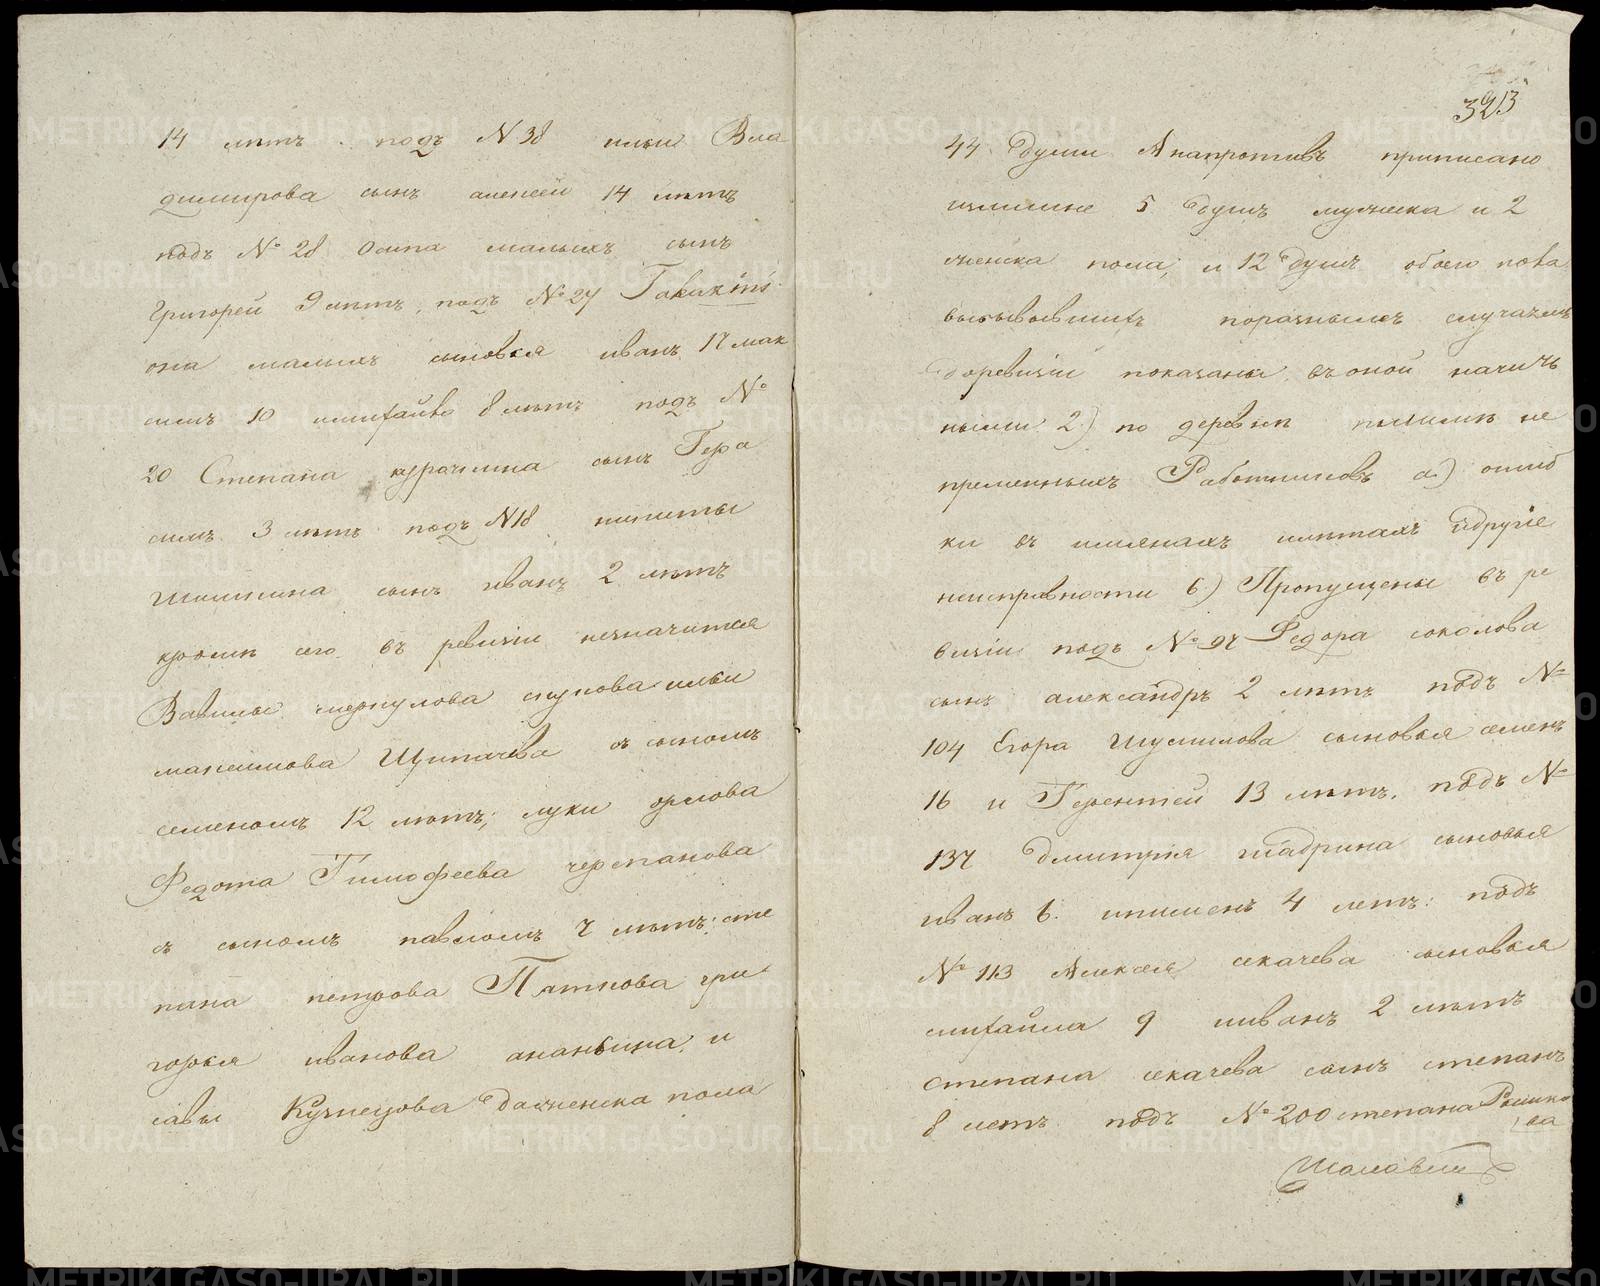 14 летъ подъ N 38 ильи Вла
димирова сынъ алексеи 14 летъ
подъ № 28 Осипа малыхъ сынъ
Григореи 9 летъ, подъ № 27
она малыхъ сыновья иванъ 17 мак
симъ 10 имихайло 8 летъ подъ №
20 Степана курочкина сынъ Гера
симъ 3 летъ подъ N18 никиты
сынъ иванъ 2 летъ
кроме сего въ ревизии незначится
Вавилы меркулова ильи
максимова Щипачева съ сыномъ
семеномъ 12 летъ; луки орлова
Федота Тимофеева черепанова
съ сыномъ павломъ 7 летъ: сте
пана петрова Пяткова гри
горья иванова ананьина, и
савы Кузнецова даженска пола
323
44 души Анапротивъ приписано
излишне 5 душъ мужеска и 2
женска пола, и 12 душъ обоего пола
выбывшихъ поразнымъ случаямъ
доревизии показаны въ оной налич
ными 2) по деревне не
пременныхъ Работниковъ а) ошиб
ки въ имянахъ илетахъ идругие
неисправности б) Пропущены въ ре
визии подъ № 97 Федора соколова
сынъ александръ 2 летъ подъ №
104 Егора Шумилова сыновья семенъ
16 и Терентей 13 летъ, подъ №
137 Дмитрия шабрина сыновья
иванъ 6. ипименъ 4 летъ: подъ
№ 113 Алексея секачева сыновья
михаила 9 ииванъ 2 летъ
степана секачева сынъ степанъ
8 летъ подъ № 200 степана Рышко
ва
METRIKI.GASO-URAL.RU